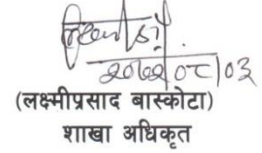 २०७२।०८।०३
(लक्ष्मीप्रसाद बास्कोटा)
शाखा अधिकृत